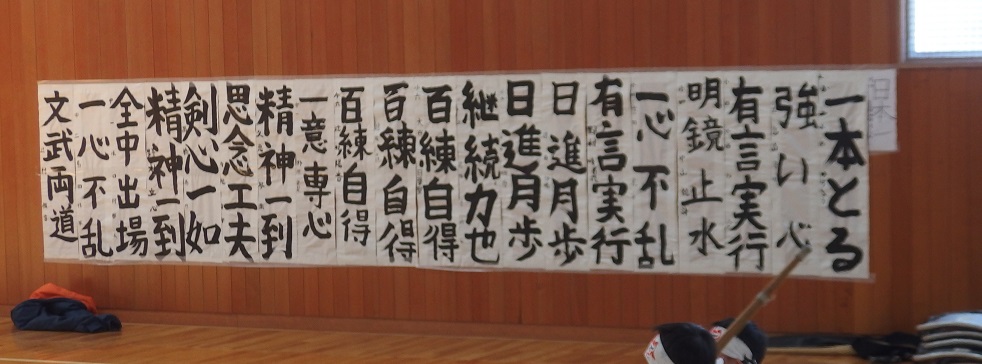 一本とる
強い心
有言実行
明鏡止水
一心不乱
有言実行
日進月歩
日進月歩
継続力也
百練自得
百練自得
百練自得
一意専心
精神一到
思念工夫
剣心一如
精神一到
全中出場
一心不乱
文武両道